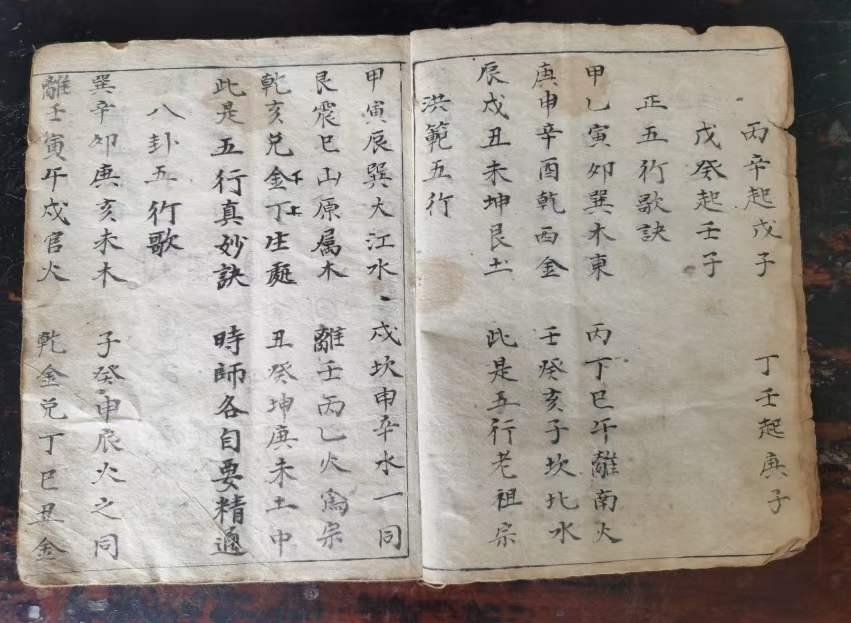 丙辛起戊子 丁壬起庚子
戊癸起壬子
正五行歌訣
甲乙寅卯巽木東 丙丁巳午離南火
庚申辛酉乾西金 壬癸亥子坎北水
辰戌丑未坤艮土 此是五行老祖宗
洪範五行
甲寅辰巽大江水 戌坎申辛水一同
艮震巳山原屬木 離壬丙乙火為宗
乾亥兌金丁生處 丑癸坤庚未土中
此是五行真妙訣 時師各自要精通
八卦五行歌
巽辛卯庚亥未木 子癸申辰火之同
離壬寅午戌官火 乾金兌丁巳丑金